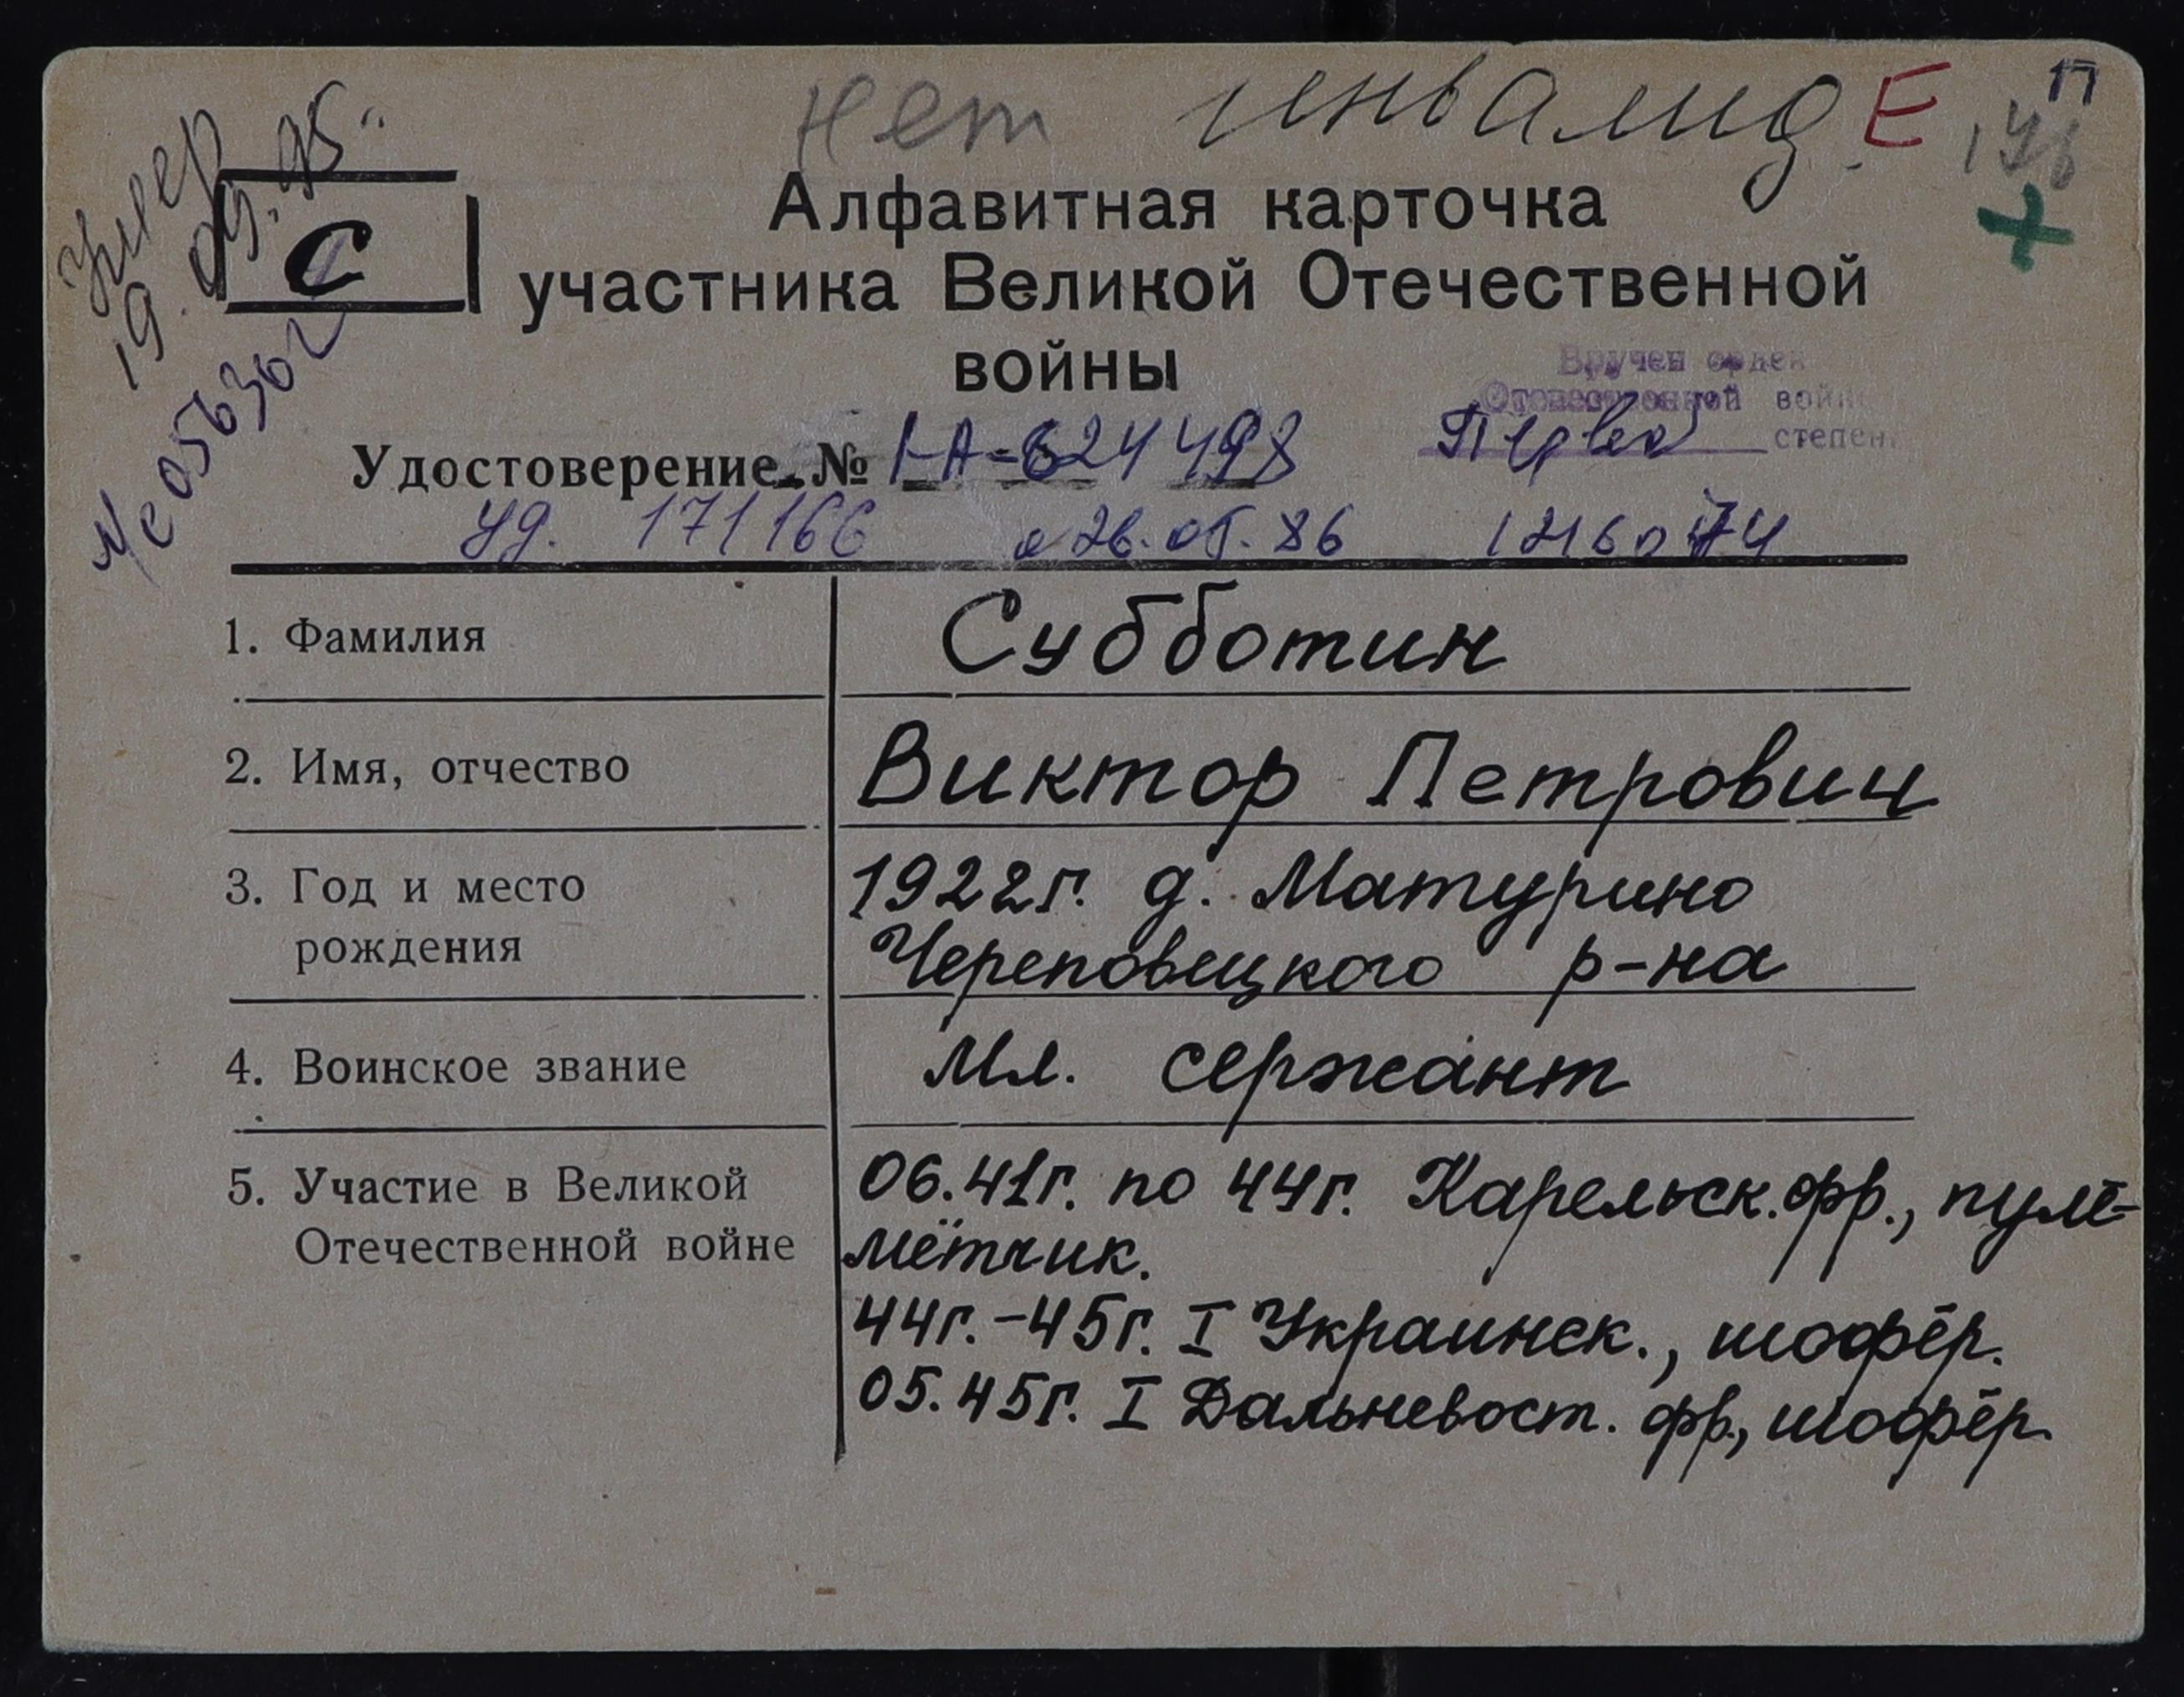 нет инвалид. Е П
Умер
19.09.95.
С
Алфавитная карточка
участника Великой Отечественной
войны
Вручен орден
Отечественной войны
Первой степени
Удостоверение № I-А-624498
уд. 171166 26.05.86
1. Фамилия Субботин
2. Имя, отчество Виктор Петрович
3. Год и место 1922г. д. Матурино
рождения Череповецкого р-на
4. Воинское звание Мл. сержант
5. Участие в Великой 06.41г. по 44г. Карельск.фр., пуле-
Отечественной войне мётчик.
44г.-45г. I Украинск., шофёр.
05.45г. I Дальневост. фр., шофёр.